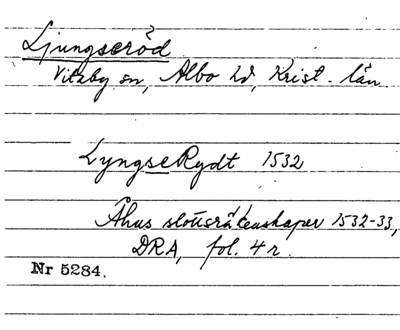 Ljungseröd
Vitaby sn, Albo hd, Krist. län
LyngseRydt 1532
Åhus slottsräkenskaper 1532-33,
DRA, fol. 4 r.
Nr 5284.